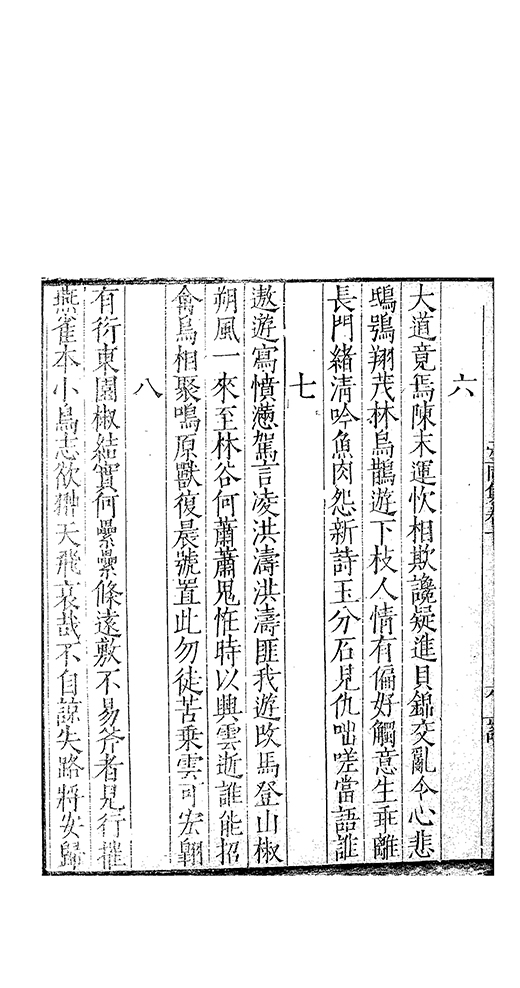 六
大道竟焉陳末運忺相欺讒疑進貝錦交亂令心悲
鴟鴞翔茂林烏鵲遊下枝人情有偏好觸意生乖離
長門緒清吟魚肉怨新詩玉分石見仇咄嗟當語誰
七
遨遊寫憤懣駕言凌洪濤洪濤匪我遊改馬登山椒
朔風一來至林谷何蕭蕭鬼恠時以興雲逝誰能招
禽鳥相聚鳴原獸復晨號置此勿徒苦乗雲可宏翱
八
有衍東園椒結實何纍纍條遠敷不易斧者見行摧
燕雀本小鳥志欲翀天飛哀哉不自諒失路將安歸